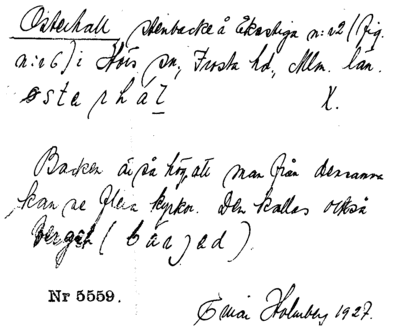 Österhall stenbacke å Åkastiga n:r 2 (fig.
n:r 6) i Höörs sn, Frosta hd, Mlm. län.
østərhàl X.
Backen är så hög, att man från densamma
kan se flera kyrkor. Den kallas också
berget (bárjed).
Nr 5559.
Einar Holmberg 1927.